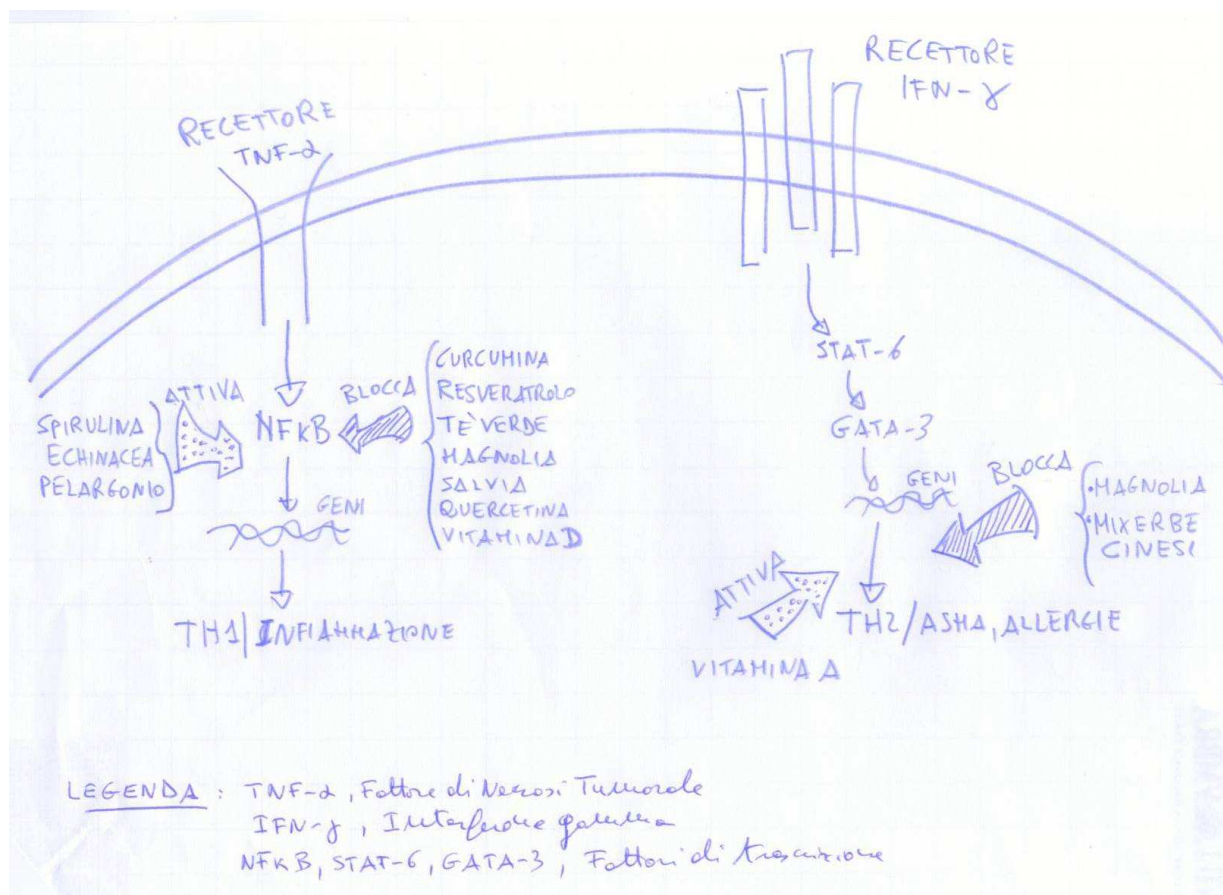 RECETTORE
TNF-α
RECETTORE
IFN-γ
ATTIVA
SPIRULINA
ECHINACEA
PELARGONIO
NFkB
BLOCCA
CURCUMINA
RESVERATROLO
TÈ VERDE
MAGNOLIA
SALVIA
QUERCETINA
VITAMINA D
GENI
TH1/INFIAMMAZIONE
STAT-6
GATA-3
GENI
BLOCCA
•MAGNOLIA
•MIX ERBE
CINESI
ATTIVA
VITAMINA A
TH2/ASMA, ALLERGIE
LEGENDA : TNF-α, Fattore di Necrosi Tumorale
IFN-γ, Interferone gamma
NFkB, STAT-6, GATA-3, Fattori di trascrizione